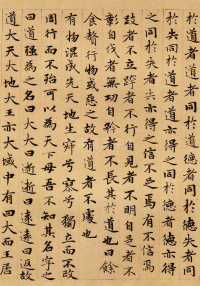 於道者道者同於道德者同於德失者同
於失同於道者道亦得之同於德者德亦得
之同於失者失亦得之信不足焉有不信焉
跂者不立跨者不行自見者不明自是者不
彰自伐者無功自矜者不長其於道也曰餘
食贅行物或惡之故有道者不處也
有物混成先天地生寂兮寥兮獨立而不改
周行而不殆可以為天下母吾不知其名字之
曰道強為之名曰大大曰逝逝曰遠遠曰返故
道大天大地大王亦大域中有四大而王居